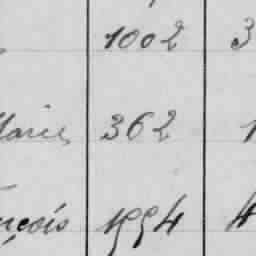 1002 3
Marie 362 1
nçois 1554 4